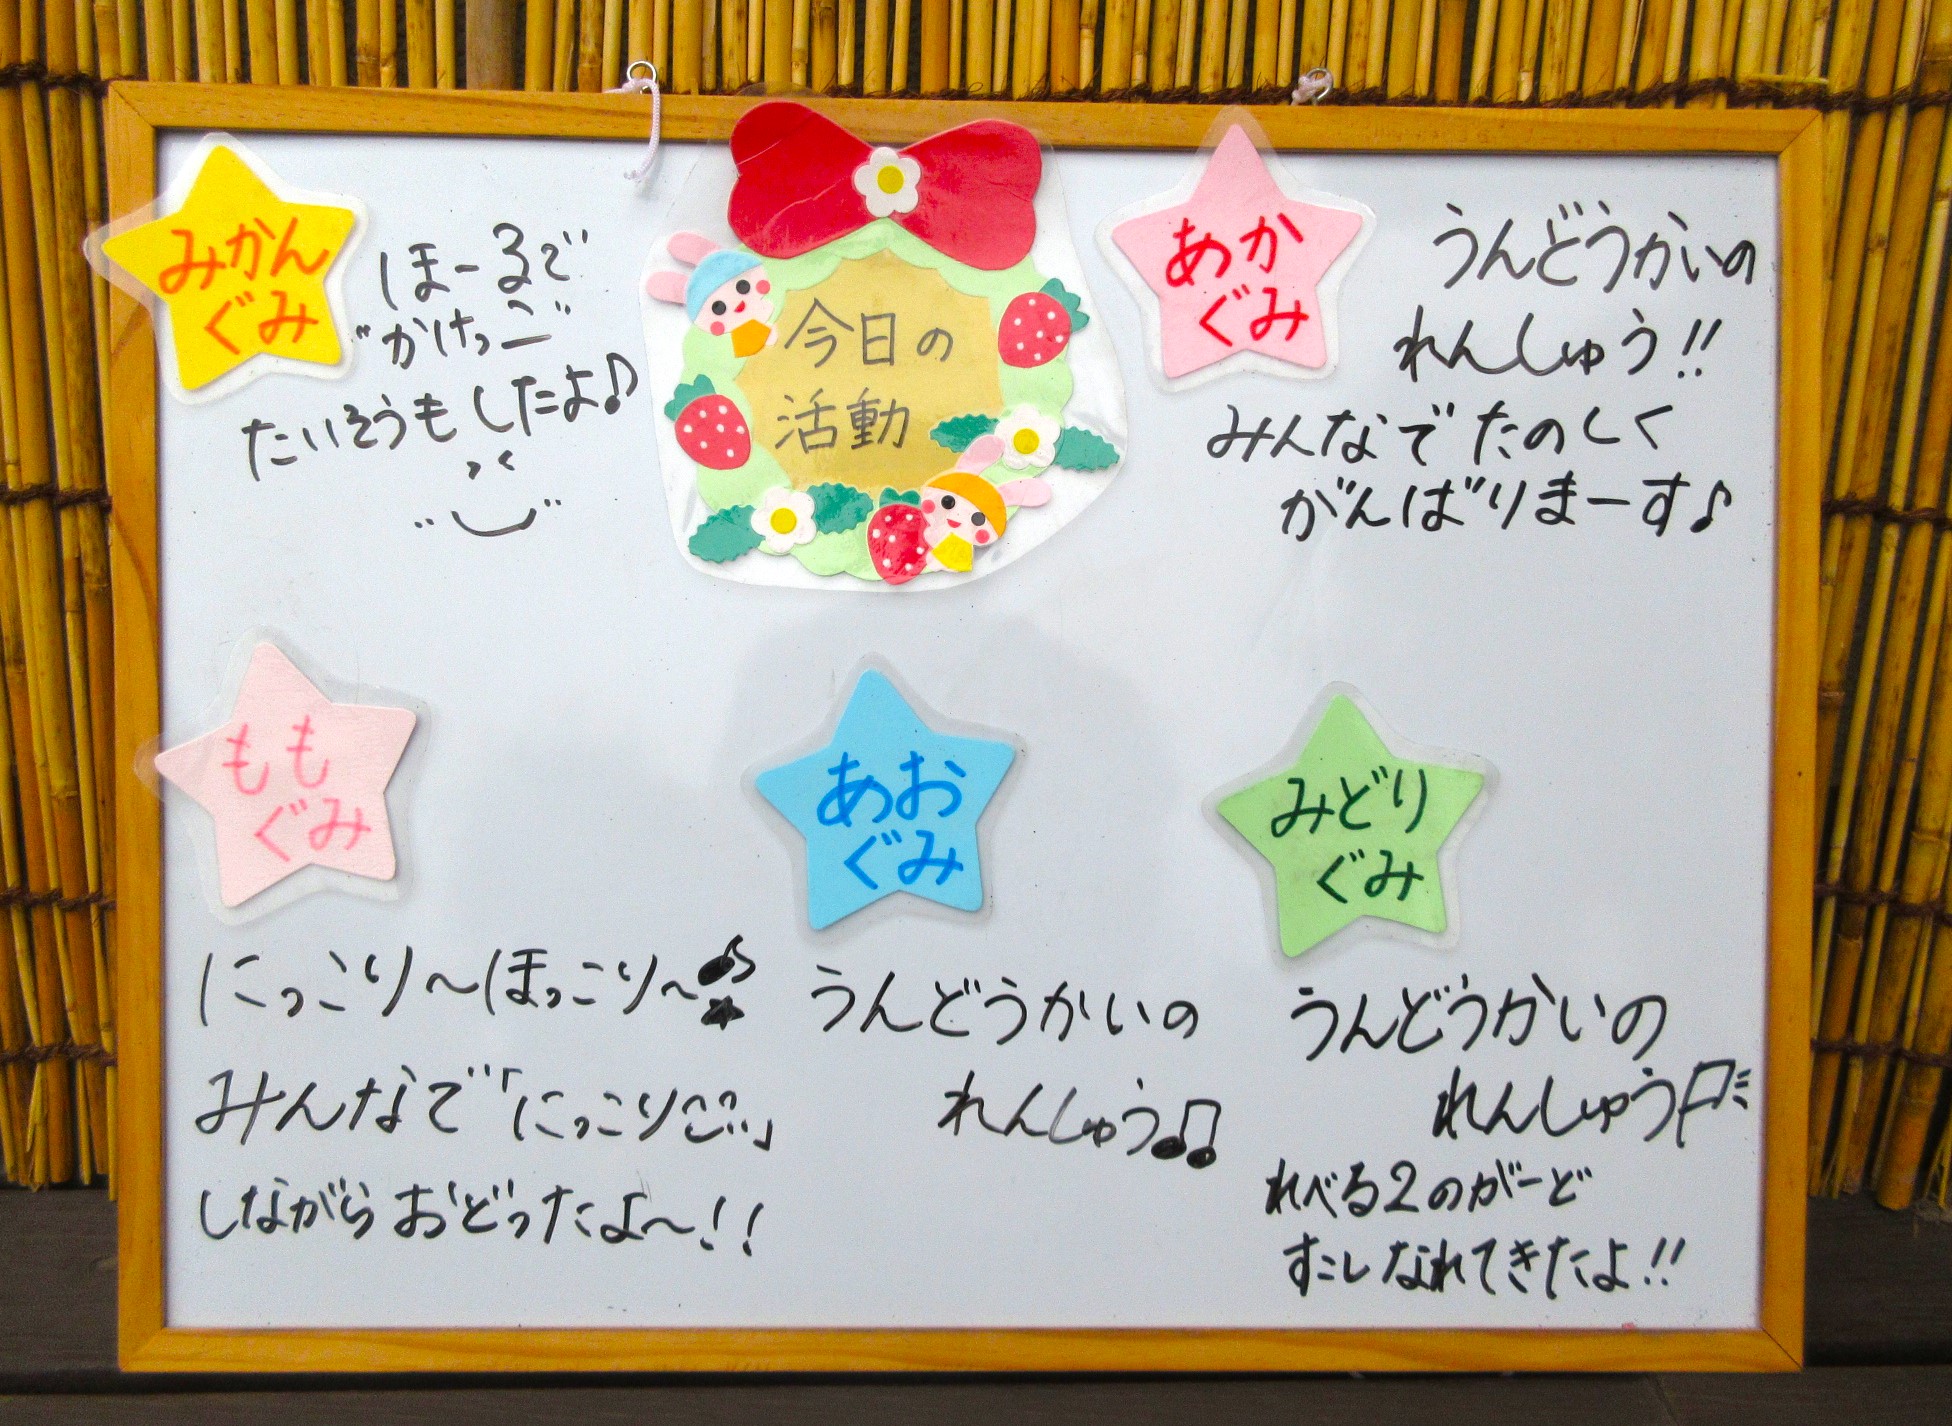 みかん
ぐみ
ほーるで
"かけっこ"
たいそうもしたよ♪
今日の
活動
あか
ぐみ
うんどうかいの
れんしゅう!!
みんなでたのしく
がんばりまーす♪
もも
ぐみ
にっこり〜ほっこり〜♪★
みんなで「にっこり」
しながらおどったよ〜!!
あお
ぐみ
うんどうかいの
れんしゅう♫
みどり
ぐみ
うんどうかいの
れんしゅう
れべる2のがーど
すこしなれてきたよ!!